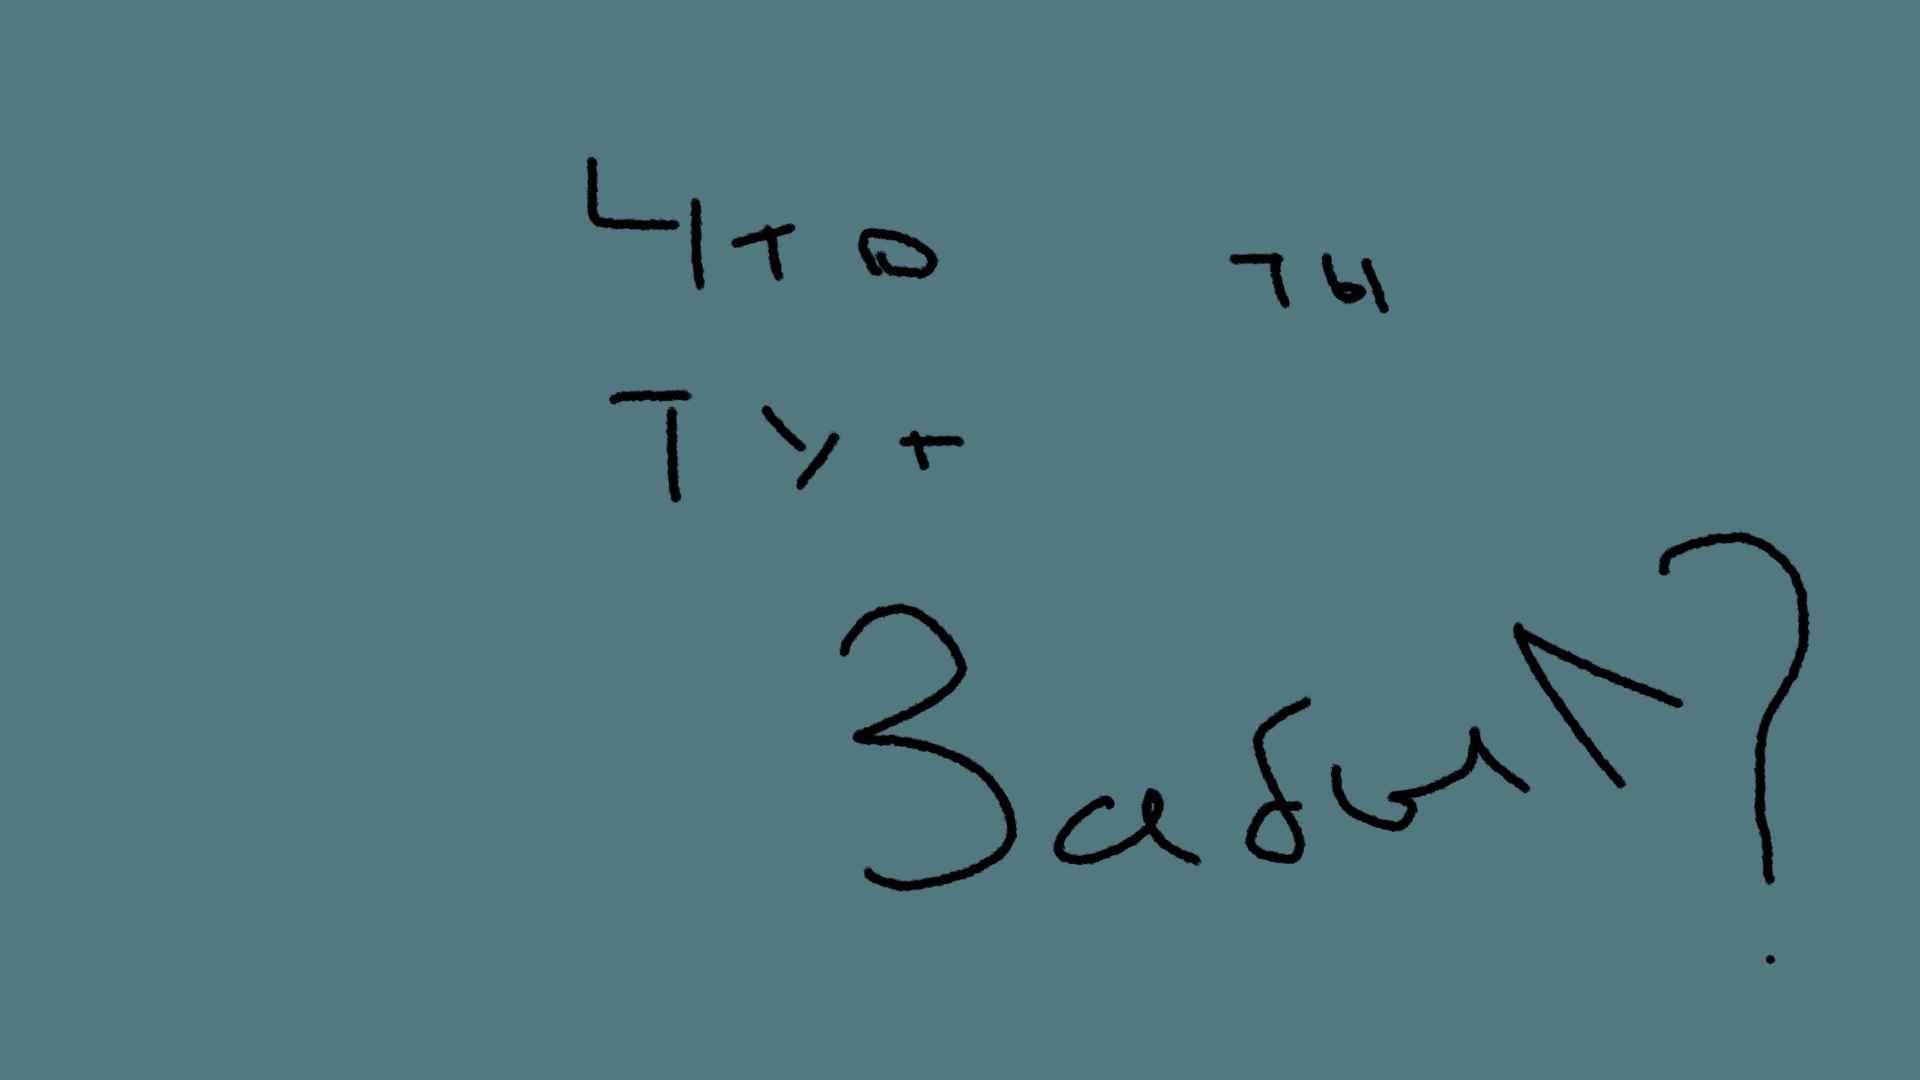 Что ты
Тут
Забыл?